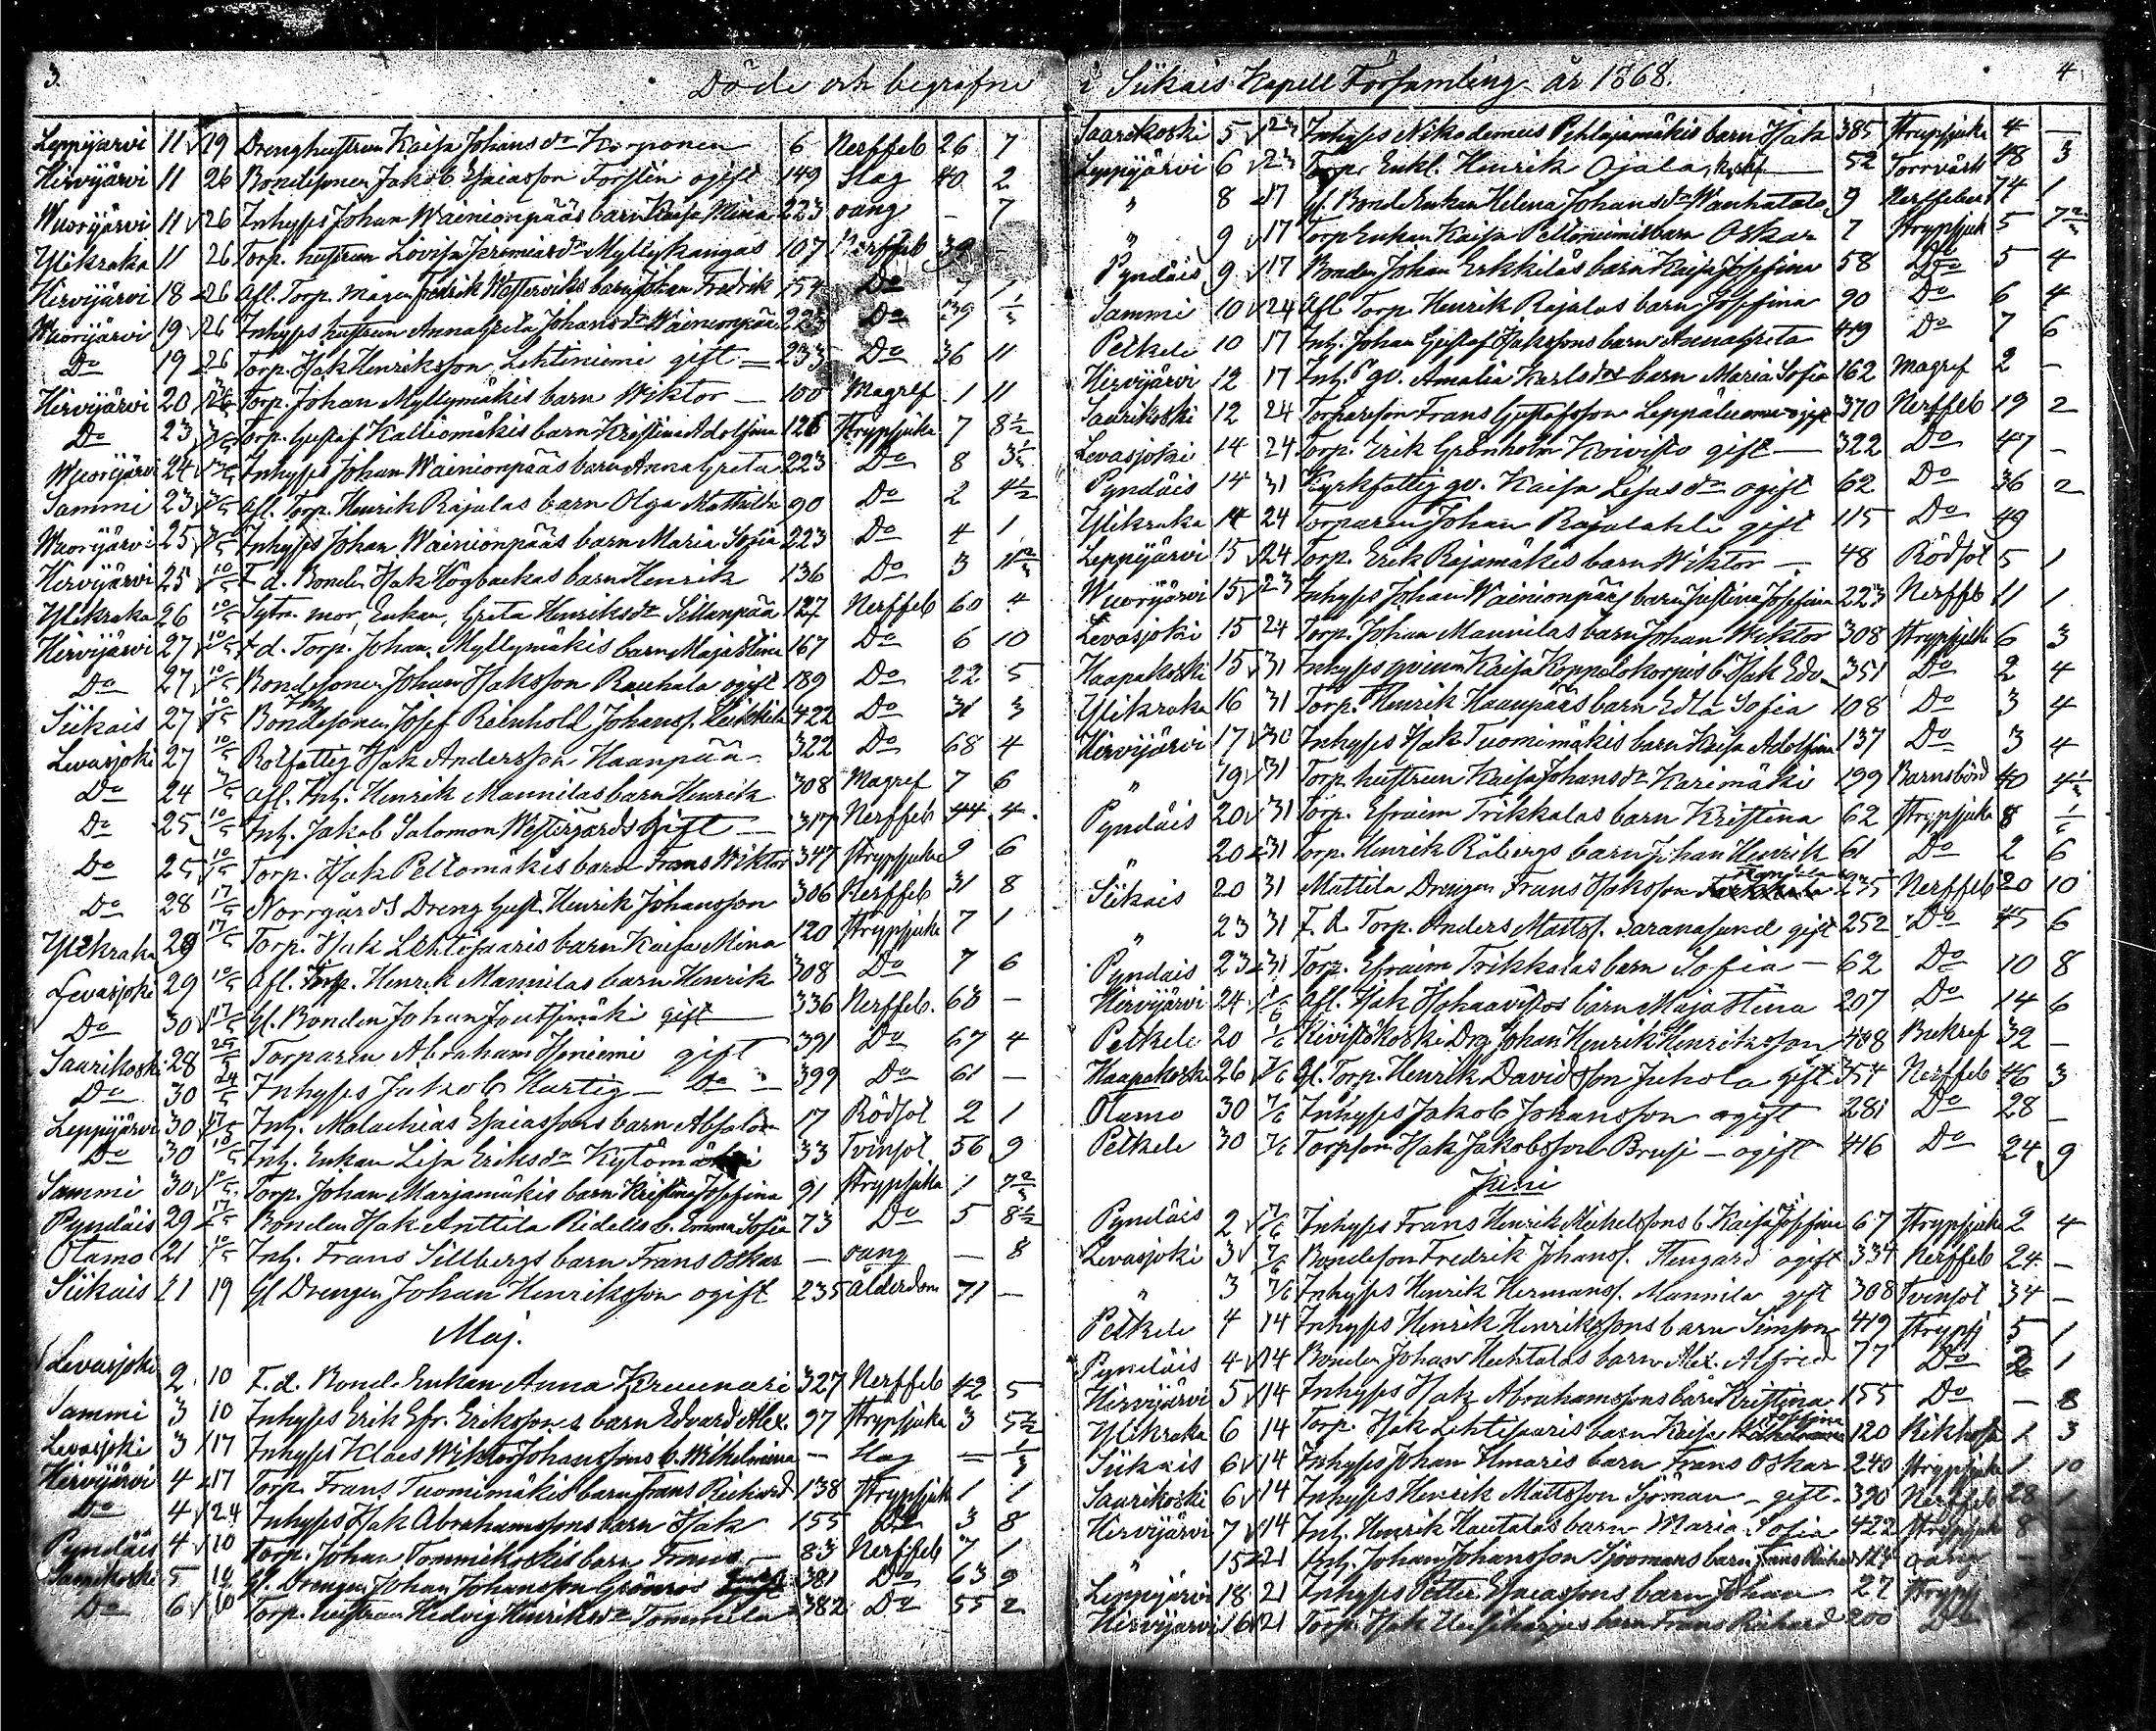 3.
Döde och begrafne
Leppijärvi 11 19 Drenghustrun Kaisa Johansdr Korponen 6 Nerffeb 26 7
Hirvijärvi 11 26 Bondesonen Jakob Esaiasson Forsten ogift 149 Slag 40 2
Wuorijärvi 11 26 Inhyses Johan Wainionpääs barn Kaisa Mina 223 oang - 7
Ylikraka 11 26 Torp. hustrun Lovisa Jeremiasdr Myllykangas 107 Nerffeb 39 -
Hirvijärvi 18 26 Afl. Torp. Fredrik barn Johan Fredrik 154 Do 7
Wuorijärvi 19 26 Inhyses hustrun Anna Greta Johansdr Wainionpää 223 Do 39
Do 19 26 Torp. Isak Henriksson Lehtiniemi gift 233 Do 36 11
Hirvijärvi 20 Torp. Johan Myllymäkis barn Wiktor - 100 Magref 1 11
Do 23 3/5 Torp. Gustaf Kalliomäkis barn Kristina Adolfina 126 Strypsjuka 7 8½
Wuorijärvi 24 Inhyses Johan Wainionpääs barn Anna Greta 223 Do 8
Sammi 23 3/5 Afl. Torp. Henrik Rajalas barn Olga Mathilda 90 Do 2 4½
Wuorijärvi 25 3/5 Inhyses Johan Wainionpääs barn Maria Sofia 223 Do 4 1
Hirvijärvi 25 10/5 F d. Bonden Isak Högbackas barn Henrik 136 Do 3
Ylikraka 26 10/5 Sytn. mor, Enkan, Greta Henriksdr Sillanpää 127 Nerffeb 60 4
Hirvijärvi 27 10/5 F d. Torp. Johan Myllymäkis barn Maja Stina 167 Do 6 10
Do 27 10/5 Bondesonen Johan Isaksson Rauhala ogift 189 Do 22 5
Siikais 27 10/5 Bondesonen Josef Reinhold Johanss. 422 Do 31 3
Levasjoki 27 10/5 Rotfattig Isak Andersson Haanpää 322 Do 68 4
Do 24 3/5 Afl. Inh. Henrik Mannilas barn Henrik 308 Magref 7 6
Do 25 10/5 Inh. Jakob Salomon Westergårds Gift - 317 Nerffeb 44 4
Do 25 10/5 Torp. Isak Peltomäkis barn Frans Wiktor 347 Strypsjuka 9 6
Do 28 17/5 Norrgårds Dreng Gust. Henrik Johansson 306 Nerffeb 31 8
Ylikraka 29 17/5 Torp. Isak Lehtisaaris barn Kaisa Mina 120 Strypsjuka 7 1
Levasjoki 29 10/5 Afl. Henrik Mannilas barn Henrik 308 Do 7 6
Do 30 17/5 Gl. Bonden Johan Joutsimäki gift 336 Nerffeb. 63 -
Saarikoski 28 Torparen Abraham Isoniemi gift 391 Do 67 4
Do 30 24/5 Inhyses Jakob Hartig - Do 399 Do 61 -
Leppijärvi 30 17/5 Inh. Malachias Esaiassons barn Absalon 17 Rödsot 2 1
Do 30 10/5 Inh. Enkan Lisa Eriksdr 33 Tvinsot 56 9
Sammi 30 10/5 Torp. Johan Marjamäkis barn Kristina Josefina 91 Strypsjuka 1 7⅔
Pyndäis 29 17/5 Bonden Isak Anttila Ridells b. Emma Sofia 73 Do 5 8½
Otamo 21 10/5 Inh. Frans Sillbergs barn Frans Oskar - oang - 8
Siikais 21 19 Gl Drengen Johan Henriksson ogift 235 Ålderdom 71 -
Maj.
Levasjoki 2 10 F. d. Bond. Enkan Anna 327 Nerffeb 42 5
Sammi 3 10 Inhyses Erik Efr. Erikssons barn Edvard Alex. 97 Strypsjuka 3 5½
Levasjoki 3 17 Inhyses Klaes Wiktor Johanssons b. Wilhelmina - Slag =
Hirvijärvi 4 17 Torp. Frans Tuomimäkis barn Frans Richard 138 Strypsjuk 1 1
Do 4 24 Inhyses Isak Abrahamssons barn Isak 155 Do 3 8
Pyndäis 4 10 Torp. Johan Tommikoskis barn Frans - 83 Nerffeb 7 1
Saarikoski 5 10 Gl. Drengen Johan Johansson 381 Do 63 9
Do 6 10 Torp. hustrun Hedvig Henriksdr Tommila 382 Do 55 2
i Siikais Kapell Församling år 1868.
4
Saarikoski 5 Inhyses Nikodemus Pihlajamäkis barn Isak 385 Strypsjuka 4 -
Leppijärvi 6 Torp. Enkl. Henrik Ojala, 52 Torrvärk 48 3
" 8 17 Gl. Bond Enkan Helena Johansdr 9 Nerffeber 74 1
" 9 17 Torp Enkan Kaisa Peltoniemis barn Oskar 7 Strypsjuk 5
Pyndäis 9 17 Bonden Johan Erkkiläs barn Kaisa Josefina 58 Do 5 4
Sammi 10 24 Afl Torp. Henrik Rajalas barn Josefina 90 Do 6 4
Petkele 10 17 Inh. Johan Gustaf Isakssons barn Anna Greta 449 Do 7 6
Hirvijärvi 12 17 Inh. gv. Amalia Karlsdrs barn Maria Sofia 162 Magref 2 -
Saarikoski 12 24 Torparson Frans Gustafsson Leppäluoma ogift 370 Nerffeb 19 2
Levasjoki 14 24 Torp. Erik Grönholm Koivisto gift - 322 Do 47 -
Pyndäis 14 31 Kyrkfattig gv. Kaisa dr ogift 62 Do 36 2
Ylikraka 14 24 Torparen Johan Rajalahti gift 115 Do 49
Leppijärvi 15 24 Torp. Erik Rajamäkis barn Wiktor - 48 Rödsot 5 1
Wuorijärvi 15 23 Inhyses Johan Wainionpääs barn Justina Josefina 223 Nerffb 11 1
Levasjoki 15 24 Torp. Johan Mannilas barn Johan Wiktor 308 Strypsjuk 6 3
Haapakoski 15 31 Inhyses qvinnan Kaisa b. Isak Edv. 351 Do 2 4
Ylikraka 16 31 Torp. Henrik Haanpääs barn Edla Sofia 108 Do 3 4
Hirvijärvi 17 30 Inhyses Isak Tuomimäkis barn Kaisa Adolfina 137 Do 3 4
" 19 31 Torp. hustrun Kaisa Johansdr Karimäki 199 Barnsbörd 40 4½
Pyndäis 20 31 Torp. Efraim Trikkalas barn Kristina 62 Strypsjuka 8
" 20 31 Torp. Henrik Råbergs barn Johan Henrik 61 Do 2 6
Siikais 20 31 Mattila Drengen Frans Isaksson 235 Nerffeb 20 10
" 23 31 F. d. Torp. Anders Matts. gift 252 Do 45 6
Pyndäis 23 31 Torp. Efraim Trikkalas barn Sofia - 62 Do 10 8
Hirvijärvi 24 1/6 Afl. Isak barn Maja Stina 207 Do 14 6
Petkele 20 1/6 Kivistökoski Drg Johan Henrik Henriksson 408 Bukref 32 -
Haapakoski 26 7/6 Gl. Torp. Henrik Davidsson Juhola gift 354 Nerffeb 46 3
Otamo 30 7/6 Inhyses Jakob Johansson ogift 281 Do 28 -
Petkele 30 7/6 Torpson Isak Jakobsson Brusi - ogift 416 Do 24 9
Juni
Pyndäis 2 7/6 Inhyses Frans Henrik Mickelssons b Kaisa Josefina 67 Strypsjuk 2 4
Levasjoki 3 7/6 Bondeson Fredrik Johanss. Stengård ogift 334 Nerffeb 24 -
" 3 7/6 Inhyses Henrik Hermanss. Mannila gift 308 Tvinsot 34 -
Petkele 4 14 Inhyses Henrik Henrikssons barn Simson 419 Strypsj 5 1
Pyndäis 4 14 Bonden Johan Huhtalas barn Alex. Alfred 77 Do 2 1
Hirvijärvi 5 14 Inhyses Isak Abrahamssons barn Kristina 155 Do - 8
Ylikraka 6 14 Torp. Isak Lehtisaaris barn Kaisa Josefina 120 Kikhosta 1 3
Siikais 6 14 Inhyses Johan barn Frans Oskar 240 Strypsjuka 1 10
Saarikoski 6 14 Inhyses Henrik Mattsson Sjöman - gift 390 Nerffeb 28
Hirvijärvi 7 14 Inh. Henrik Hautalas barn Maria Sofia 422 Strypsjuk 8
" 15 21 Inh. Johan Johansson Sjöomans barn Frans oang -
Leppijärvi 18 21 Inhyses Petter Esaiassons barn Johan 27 Strypsj
Hirvijärvi 16 21 Torp. Isak barn Frans Richard 200 Do